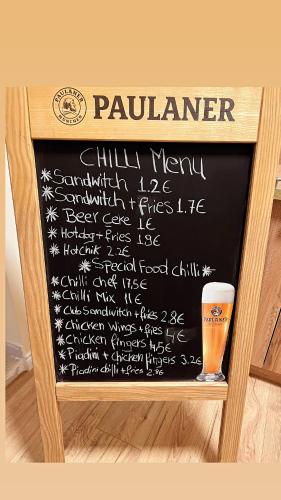 PAULANER
MÜNCHEN
PAULANER
CHILLI Menu
*Sandwitch 1.2€
*Sandwitch + fries 1.7€
*Beer Ceke 1€
*Hotdog + fries 1.9€
*Hotchik 2.2€
*Special Food chilli*
*Chilli chef 17,5€
*Chilli Mix 11€
*Club Sandwitch + fries 2.8€
*Chicken Wings + fries 4€
*Chicken fingers 4,5€
*Piadini + chicken fingers 3.2€
*Piadini chilli + fries 2.8€
PAULANER